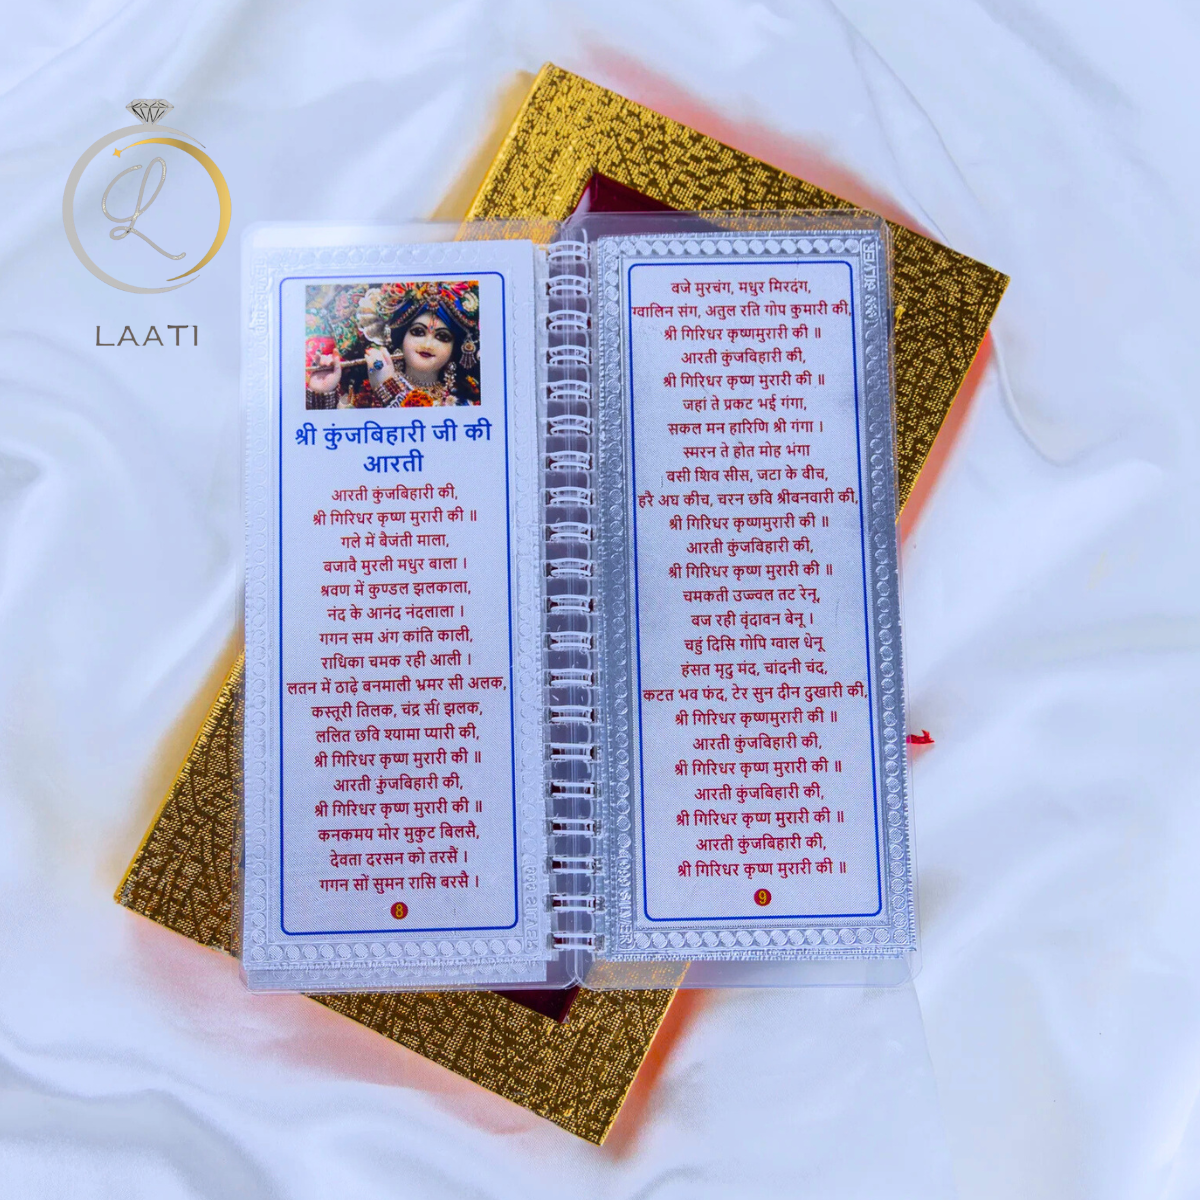 L
LAATI
श्री कुंजबिहारी जी की
आरती
आरती कुंजबिहारी की,
श्री गिरिधर कृष्ण मुरारी की ॥
गले में बैजंती माला,
बजावै मुरली मधुर बाला ।
श्रवण में कुण्डल झलकाला,
नंद के आनंद नंदलाला ।
गगन सम अंग कांति काली,
राधिका चमक रही आली ।
लतन में ठाढ़े बनमाली भ्रमर सी अलक,
कस्तूरी तिलक, चंद्र सी झलक,
ललित छवि श्यामा प्यारी की,
श्री गिरिधर कृष्ण मुरारी की ॥
आरती कुंजबिहारी की,
श्री गिरिधर कृष्ण मुरारी की ॥
कनकमय मोर मुकुट बिलसै,
देवता दरसन को तरसैं ।
गगन सों सुमन रासि बरसै ।
8
वजे मुरचंग, मधुर मिरदंग,
ग्वालिन संग, अतुल रति गोप कुमारी की,
श्री गिरिधर कृष्णमुरारी की ॥
आरती कुंजबिहारी की,
श्री गिरिधर कृष्ण मुरारी की ॥
जहां ते प्रकट भई गंगा,
सकल मन हारिणि श्री गंगा ।
स्मरन ते होत मोह भंगा
वसी शिव सीस, जटा के वीच,
हरै अघ कीच, चरन छवि श्रीवनवारी की,
श्री गिरिधर कृष्णमुरारी की ॥
आरती कुंजबिहारी की,
श्री गिरिधर कृष्ण मुरारी की ॥
चमकती उज्ज्वल तट रेनू,
बज रही वृंदावन बेनू ।
चहुं दिसि गोपि ग्वाल धेनू
हंसत मृदु मंद, चांदनी चंद,
कटत भव फंद, टेर सुन दीन दुखारी की,
श्री गिरिधर कृष्णमुरारी की ॥
आरती कुंजबिहारी की,
श्री गिरिधर कृष्ण मुरारी की ॥
आरती कुंजबिहारी की,
श्री गिरिधर कृष्ण मुरारी की ॥
आरती कुंजबिहारी की,
श्री गिरिधर कृष्ण मुरारी की ॥
9
SILVER
SILVER